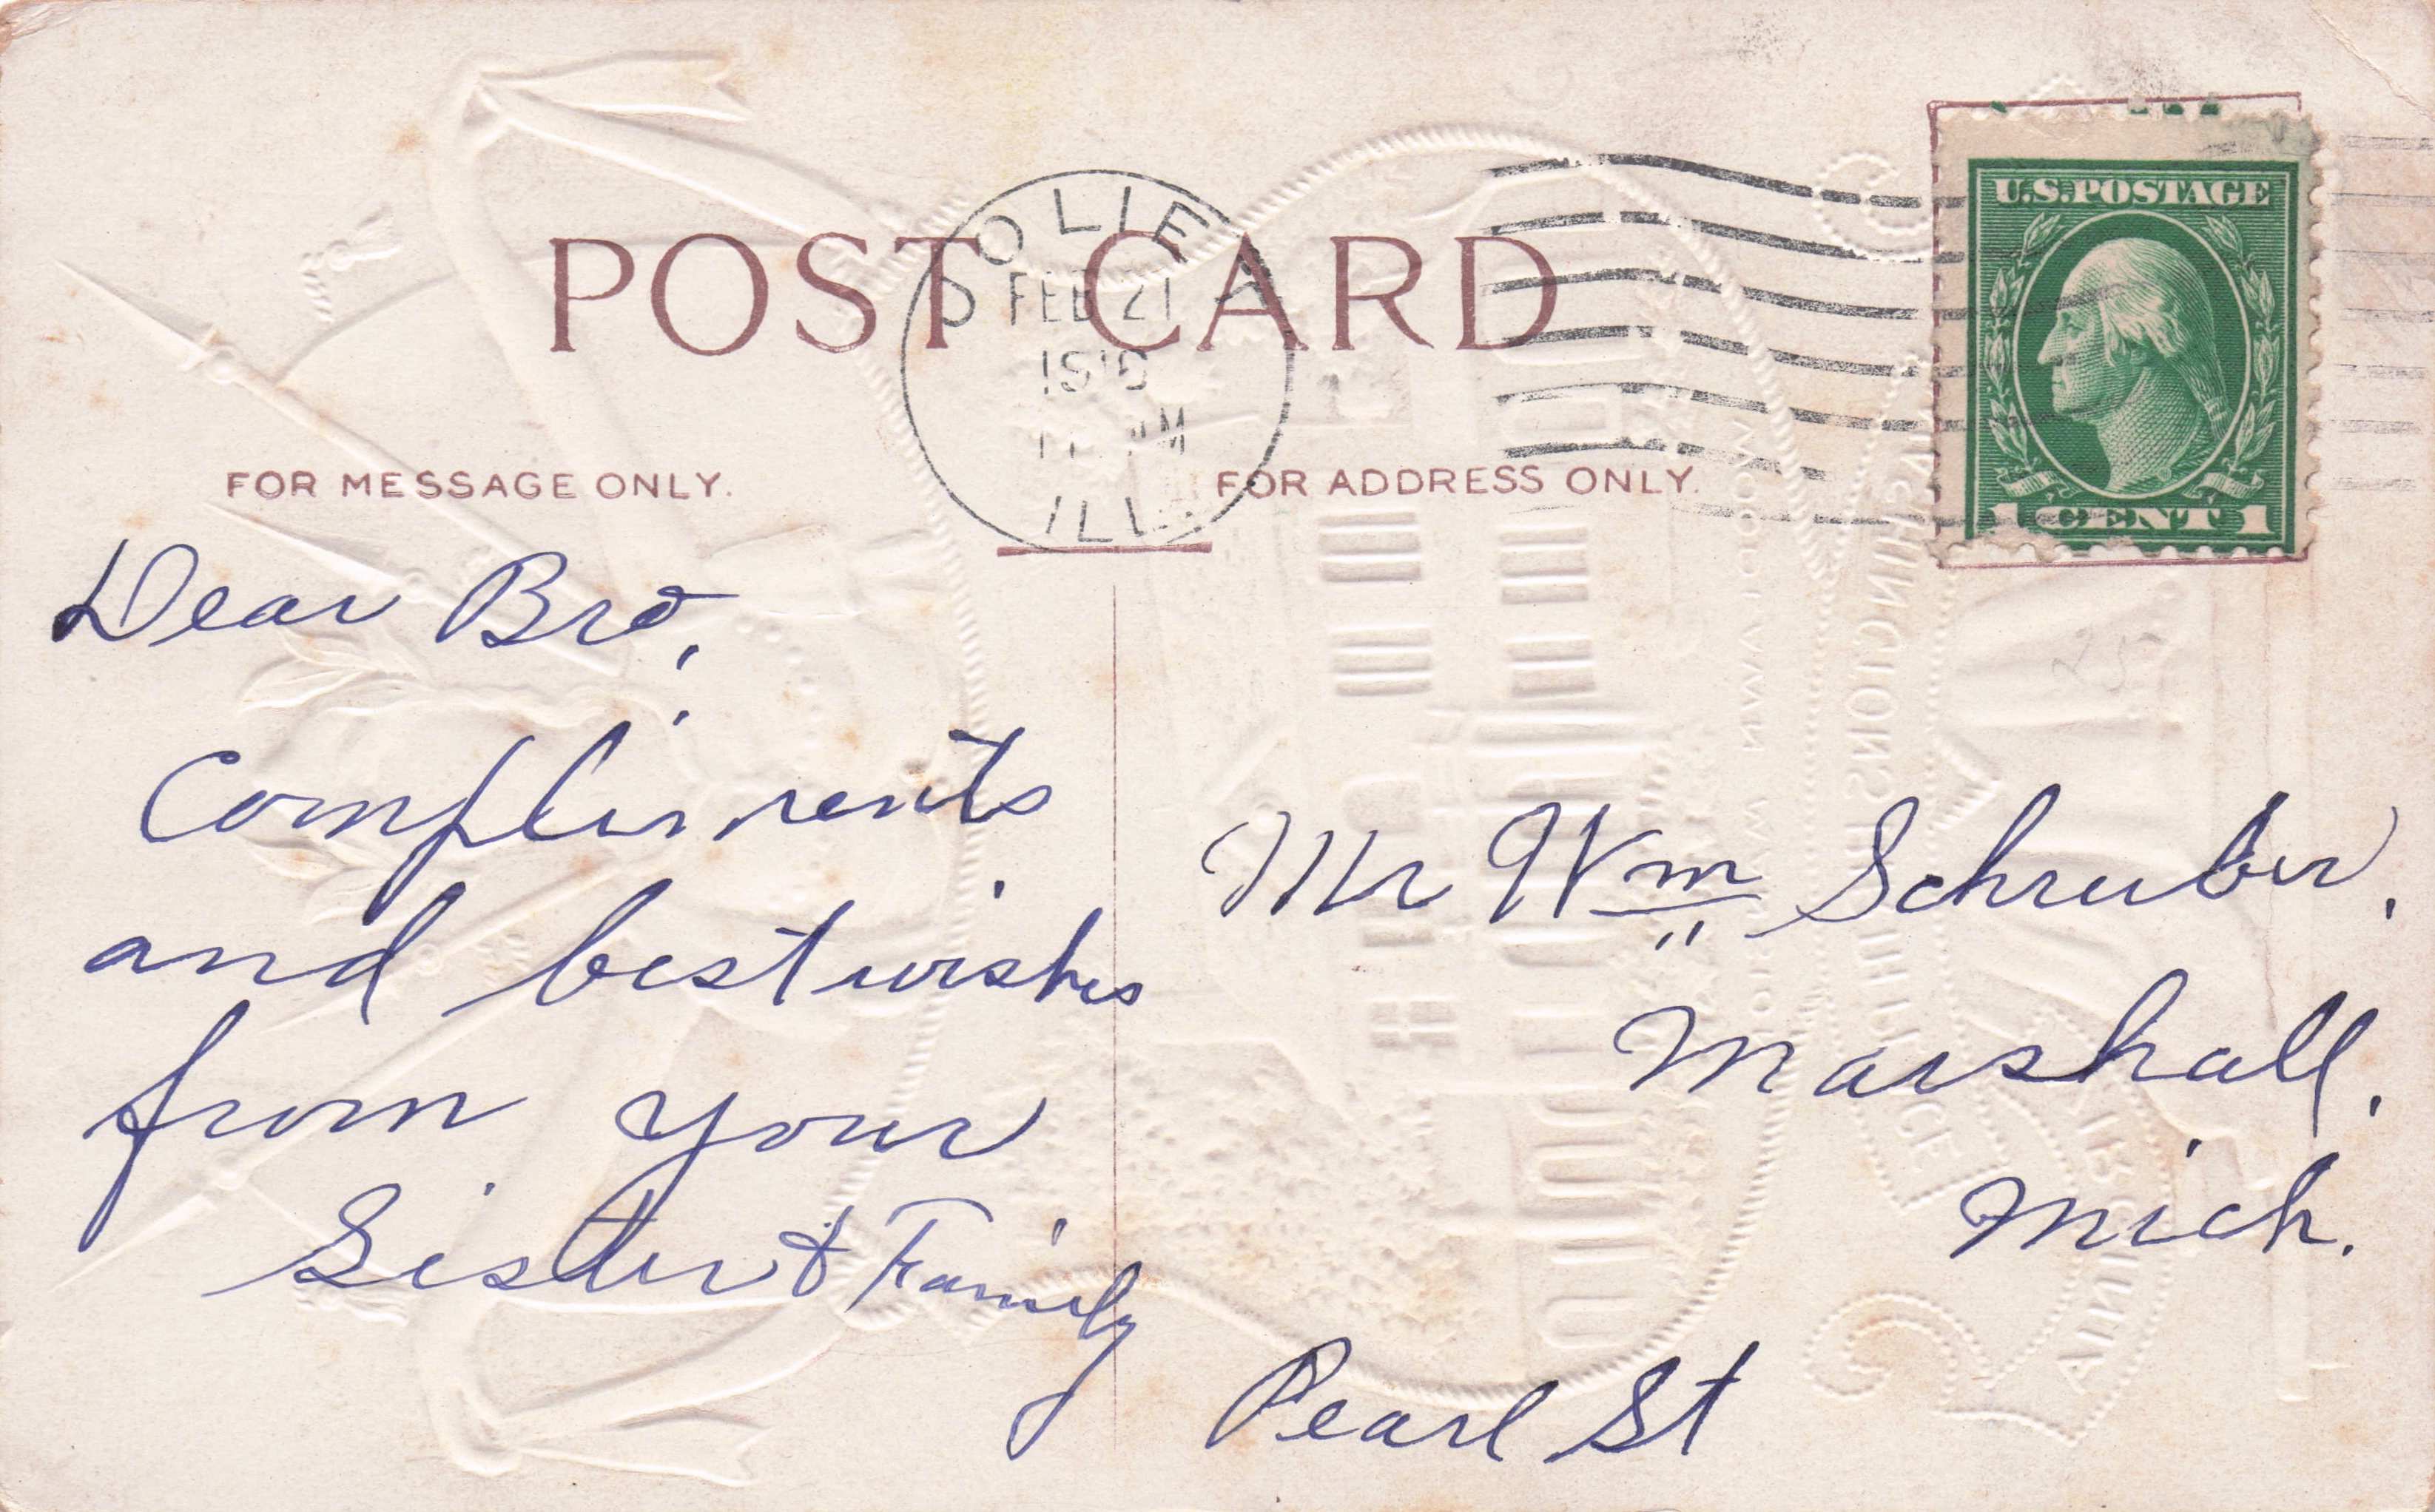 POST CARD
JOLIET
FEB 21
ILL.
U.S. POSTAGE
1 CENT 1
FOR MESSAGE ONLY.
FOR ADDRESS ONLY.
Dear Bro,
Compliments
and best wishes
from your
Sister & Family
Mr Wm Schreiber,
Marshall,
Mich.
Pearl St
25